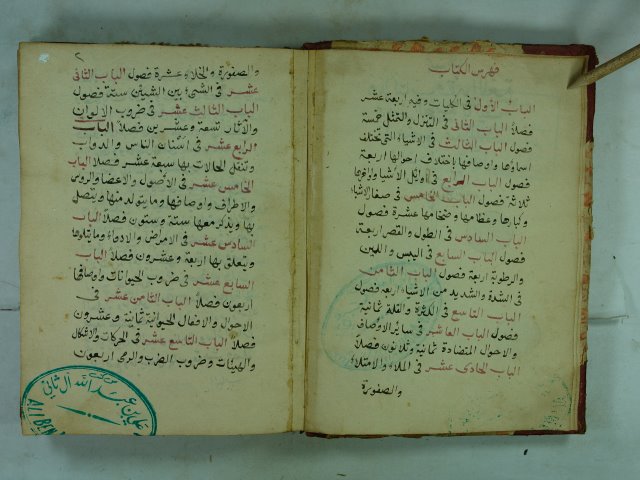 فهرس الكتاب
الباب الأول في الكليات وفيه اربعة عشر
فصلاً الباب الثانى في التنزل والتمثل خمسة
فصول الباب الثالث في الاشياء التى تختلف
اسماؤها واوصافها باختلاف احوالها اربعة
فصول الباب الرابع في اوائل الأشياء واواخرها
ثلاثة فصول الباب الخامس في صغار الاشياء
وكبارها وعظامها وضخامها عشرة فصول
الباب السادس في الطول والقصر اربعة
فصول الباب السابع في اليبس واللين
والرطوبة اربعة فصول الباب الثامن
في الشدة والشديد من الاشياء اربعة فصول
الباب التاسع في الكثرة والقلة ثمانية
فصول الباب العاشر في سائر الاوصاف
والاحوال المتضادة ثمانية وثلاثون فصلاً
الباب الحادى عشر في الملاء والامتلاء
والصفورة
٢
والصفورة والخلاء عشرة فصول الباب الثانى
عشر في الشيء بين الشيئين ستة فصول
الباب الثالث عشر في ضروب الالوان
والآثار تسعة وعشرين فصلاً الباب
الرابع عشر في اسنان الناس والدواب
وتنقل الحالات بها سبعة عشر فصلا الباب
الخامس عشر في الأصول والاعضا والروس
والاطراف واوصافها وما يتولد منها ويتصل
بها ويذكر معها ستة وستون فصلاً الباب
السادس عشر في الامراض والادواء وما يتلوها
ويتعلق بها اربعة وعشرون فصلا الباب
السابع عشر في ضروب الحيوانات واوصافها
اربعون فصلاً الباب الثامن عشر في
الاحوال والافعال الحيوانية ثمانية وعشرون
فصلاً الباب التاسع عشر في الحركات والاشكال
والهيئات وضروب الضرب والرمي اربعون
علي بن عبد الله آل ثاني
ALI BEN